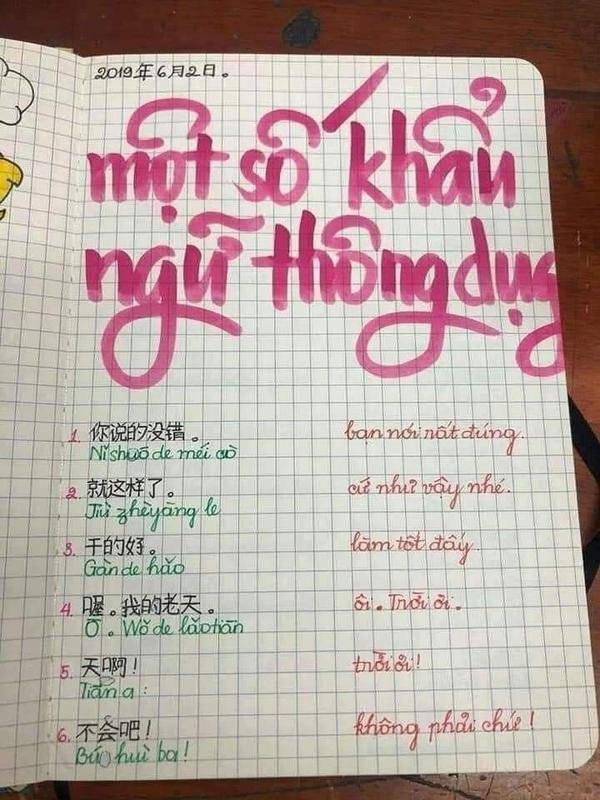 2019年6月2日。
một số khẩu
ngữ thông dụng
1. 你说的没错。 bạn nói rất đúng.
Nǐ shuō de méi cuò
2. 就这样了。 cứ như vậy nhé.
Jiù zhèyàng le
3. 干的好。 làm tốt đấy.
Gàn de hǎo
4. 喔。我的老天。 ôi. Trời ơi.
Ō. Wǒ de lǎotiān
5. 天啊！ trời ơi!
Tiān a :
6. 不会吧！ không phải chứ!
Bú huì ba!